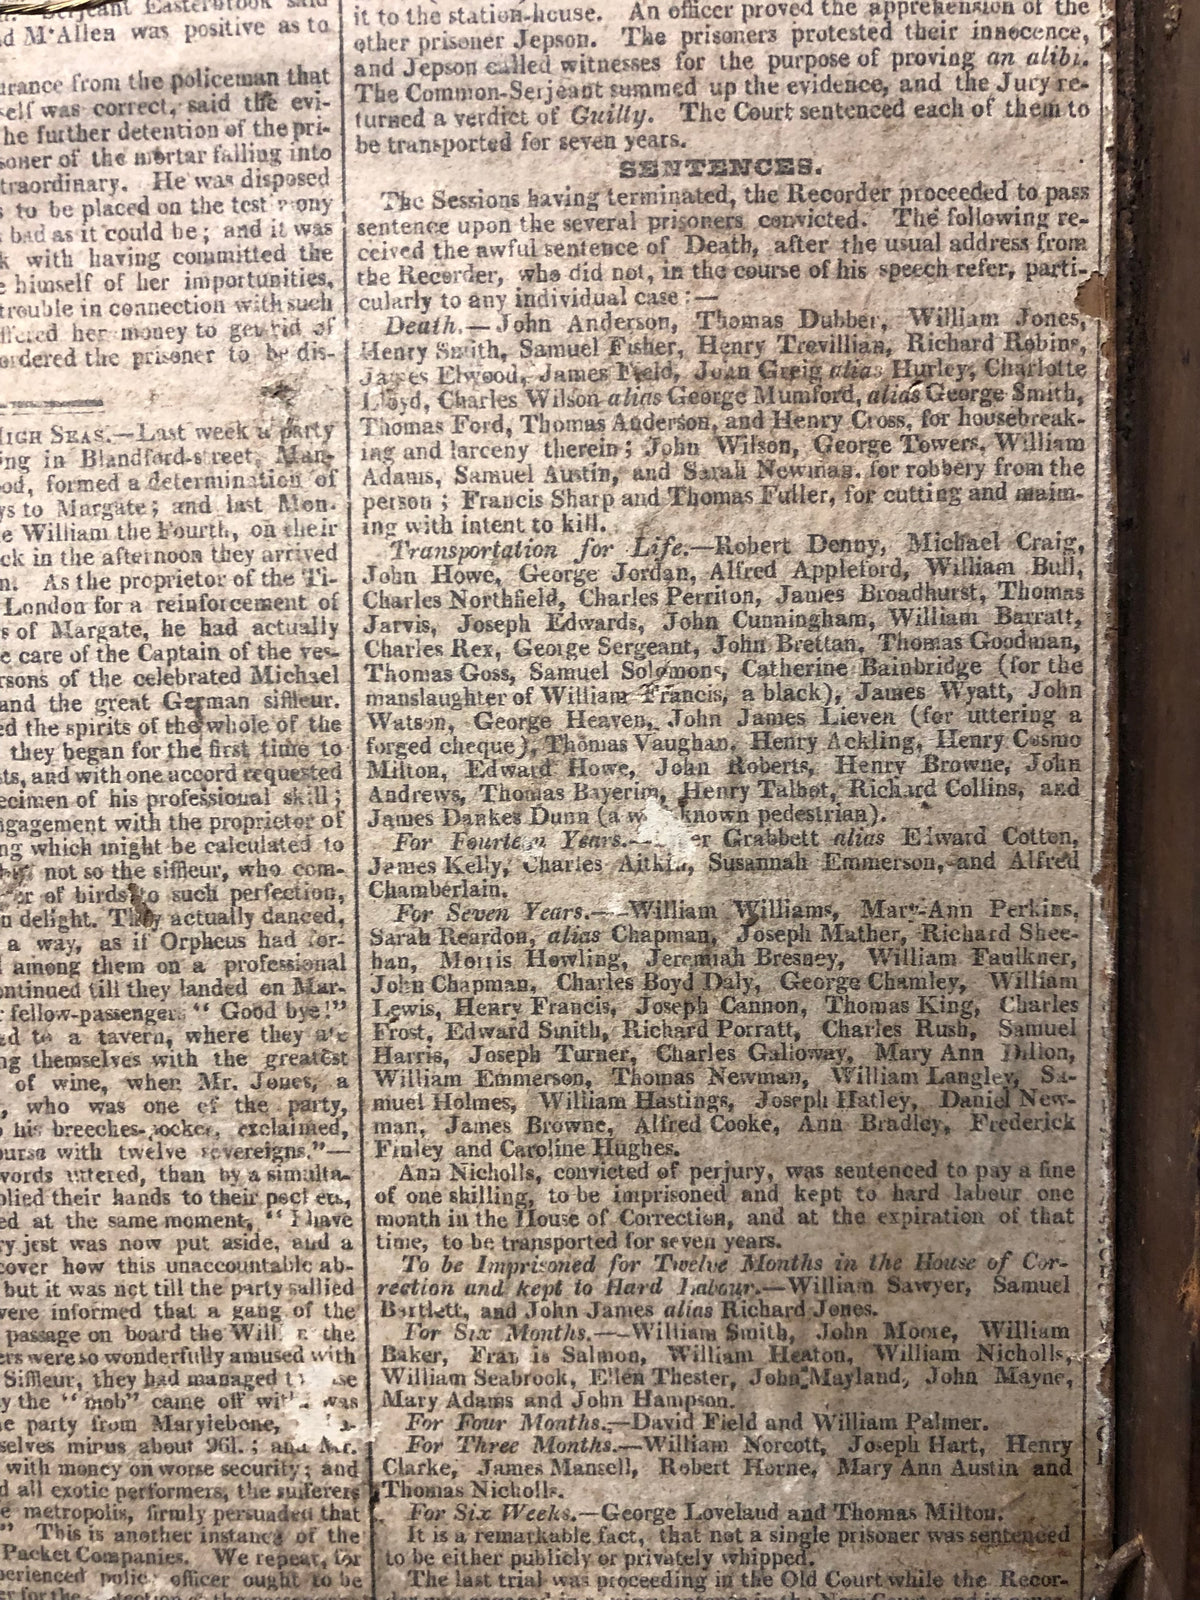 Serjeant Easterbrook said
M'Allen was positive as to
urance from the policeman that
self was correct, said the evi-
he further detention of the pri-
soner of the mortar falling into
traordinary. He was disposed
to be placed on the testimony
bad as it could be; and it was
with having committed the
himself of her importunities,
trouble in connection with such
ffered her money to get rid of
ordered the prisoner to be dis-
HIGH SEAS.—Last week a party
ing in Blandford-street, Man-
ood, formed a determination of
ys to Margate; and last Mon-
e William the Fourth, on their
ck in the afternoon they arrived
n. As the proprietor of the Ti-
London for a reinforcement of
s of Margate, he had actually
e care of the Captain of the ves-
rsons of the celebrated Michael
and the great German siffleur.
ed the spirits of the whole of the
they began for the first time to
ts, and with one accord requested
ecimen of his professional skill;
ngagement with the proprietor of
ng which might be calculated to
not so the siffleur, who com-
er of birds to such perfection,
n delight. They actually danced,
a way, as if Orpheus had for-
among them on a professional
ontinued till they landed on Mar-
fellow-passengers "Good bye!"
ed to a tavern, where they ate
ng themselves with the greatest
of wine, when Mr. Jones, a
, who was one of the party,
his breeches-pocket, exclaimed,
ourse with twelve sovereigns."—
words uttered, than by a simulta-
plied their hands to their pockets,
ed at the same moment, "I have
ry jest was now put aside, and a
cover how this unaccountable ab-
but it was not till the party sallied
were informed that a gang of the
passage on board the Will the
ers were so wonderfully amused with
Siffleur, they had managed
y the "mob" came off with was
e party from Marylebone,
selves minus about 96l.; and Mr.
with money on worse security; and
d all exotic performers, the sufferers
e metropolis, firmly persuaded that
" This is another instance of the
Packet Companies. We repeat, for
perienced police officer ought to be
it to the station-house. An officer proved the apprehension of the
other prisoner Jepson. The prisoners protested their innocence,
and Jepson called witnesses for the purpose of proving an alibi.
The Common-Serjeant summed up the evidence, and the Jury re-
turned a verdict of Guilty. The Court sentenced each of them to
be transported for seven years.
SENTENCES.
The Sessions having terminated, the Recorder proceeded to pass
sentence upon the several prisoners convicted. The following re-
ceived the awful sentence of Death, after the usual address from
the Recorder, who did not, in the course of his speech refer, parti-
cularly to any individual case:—
Death.—John Anderson, Thomas Dubber, William Jones,
Henry Smith, Samuel Fisher, Henry Trevillian, Richard Robins,
James Elwood, James Field, John Greig alias Hurley, Charlotte
Lloyd, Charles Wilson alias George Mumford, alias George Smith,
Thomas Ford, Thomas Anderson, and Henry Cross, for housebreak-
ing and larceny therein; John Wilson, George Towers, William
Adams, Samuel Austin, and Sarah Newman, for robbery from the
person; Francis Sharp and Thomas Fuller, for cutting and maim-
ing with intent to kill.
Transportation for Life.—Robert Denny, Michael Craig,
John Howe, George Jordan, Alfred Appleford, William Bull,
Charles Northfield, Charles Perriton, James Broadhurst, Thomas
Jarvis, Joseph Edwards, John Cunningham, William Barratt,
Charles Rex, George Sergeant, John Brettan, Thomas Goodman,
Thomas Goss, Samuel Solomons, Catherine Bainbridge (for the
manslaughter of William Francis, a black), James Wyatt, John
Watson, George Heaven, John James Lieven (for uttering a
forged cheque), Thomas Vaughan, Henry Ackling, Henry Cosmo
Milton, Edward Howe, John Roberts, Henry Browne, John
Andrews, Thomas Bayerim, Henry Talbot, Richard Collins, and
James Dankes Dunn (a w known pedestrian).
For Fourteen Years.— er Grabbett alias Edward Cotton,
James Kelly, Charles Aitkin, Susannah Emmerson, and Alfred
Chamberlain.
For Seven Years.—William Williams, Mary-Ann Perkins,
Sarah Reardon, alias Chapman, Joseph Mather, Richard Shee-
han, Morris Howling, Jeremiah Bresney, William Faulkner,
John Chapman, Charles Boyd Daly, George Chamley, William
Lewis, Henry Francis, Joseph Cannon, Thomas King, Charles
Frost, Edward Smith, Richard Porratt, Charles Rush, Samuel
Harris, Joseph Turner, Charles Galloway, Mary Ann Dillon,
William Emmerson, Thomas Newman, William Langley, Sa-
muel Holmes, William Hastings, Joseph Hatley, Daniel New-
man, James Browne, Alfred Cooke, Ann Bradley, Frederick
Finley and Caroline Hughes.
Ann Nicholls, convicted of perjury, was sentenced to pay a fine
of one shilling, to be imprisoned and kept to hard labour one
month in the House of Correction, and at the expiration of that
time, to be transported for seven years.
To be Imprisoned for Twelve Months in the House of Cor-
rection and kept to Hard Labour.—William Sawyer, Samuel
Bartlett, and John James alias Richard Jones.
For Six Months.—William Smith, John Moore, William
Baker, Francis Salmon, William Heaton, William Nicholls,
William Seabrook, Ellen Thester, John Mayland, John Mayne,
Mary Adams and John Hampson.
For Four Months.—David Field and William Palmer.
For Three Months.—William Norcott, Joseph Hart, Henry
Clarke, James Mansell, Robert Horne, Mary Ann Austin and
Thomas Nicholls.
For Six Weeks.—George Lovelaud and Thomas Milton.
It is a remarkable fact, that not a single prisoner was sentenced
to be either publicly or privately whipped.
The last trial was proceeding in the Old Court while the Recor-